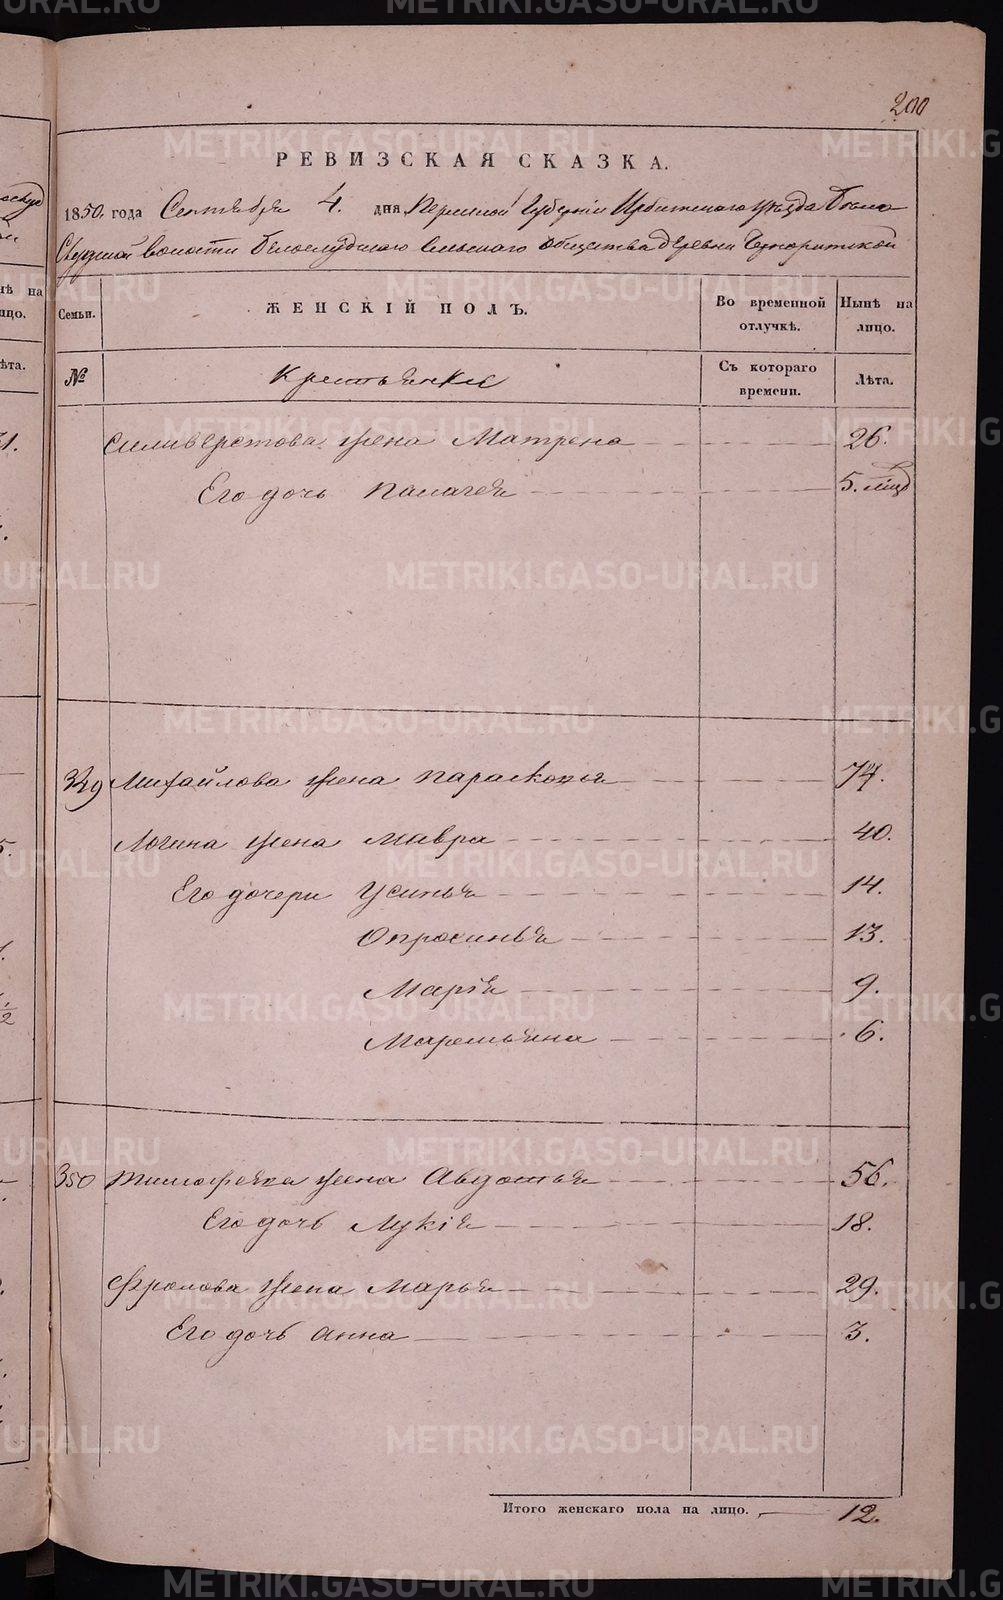 200
РЕВИЗСКАЯ СКАЗКА.
1850. года Сентября 4. дня, Пермской Губернiи Ирбитского уѣзда Бѣло
слудской волости Бѣлослудского сельского общества деревни
Семьи. ЖЕНСКIЙ ПОЛЪ. Во временной отлучкѣ. Нынѣ на лицо.
№ Крестьянки Съ котораго времени. Лѣта.
Силиверстова жена Матрена 26.
Его дочь Палагея 5. мѣсяц
349 Михайлова жена Парасковья 74.
Логина жена Мавра 40.
Его дочери Усинья 14.
Опросинья 13.
Марiя 9.
Маремьяна 6.
350 Тимофеева жена Авдотья 56.
Его дочь Лукiя 18.
Фролова жена Марья 29.
Его дочь Анна 3.
Итого женскаго пола на лицо. 12.
METRIKI.GASO-URAL.RU